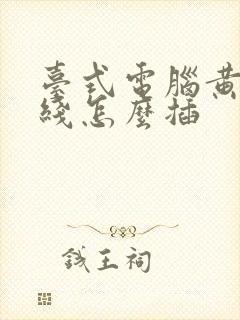 臺式電腦黃
綫怎麼插
錢王祠